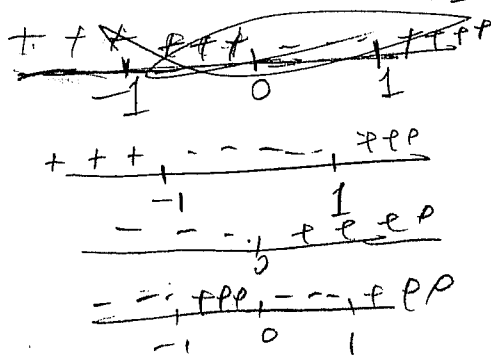 + + + + + + - - + + + +
-1 0 1
+ + + - - - - - + + +
-1 1
- - - + + + +
0
- - - + + + - - - + + +
-1 0 1